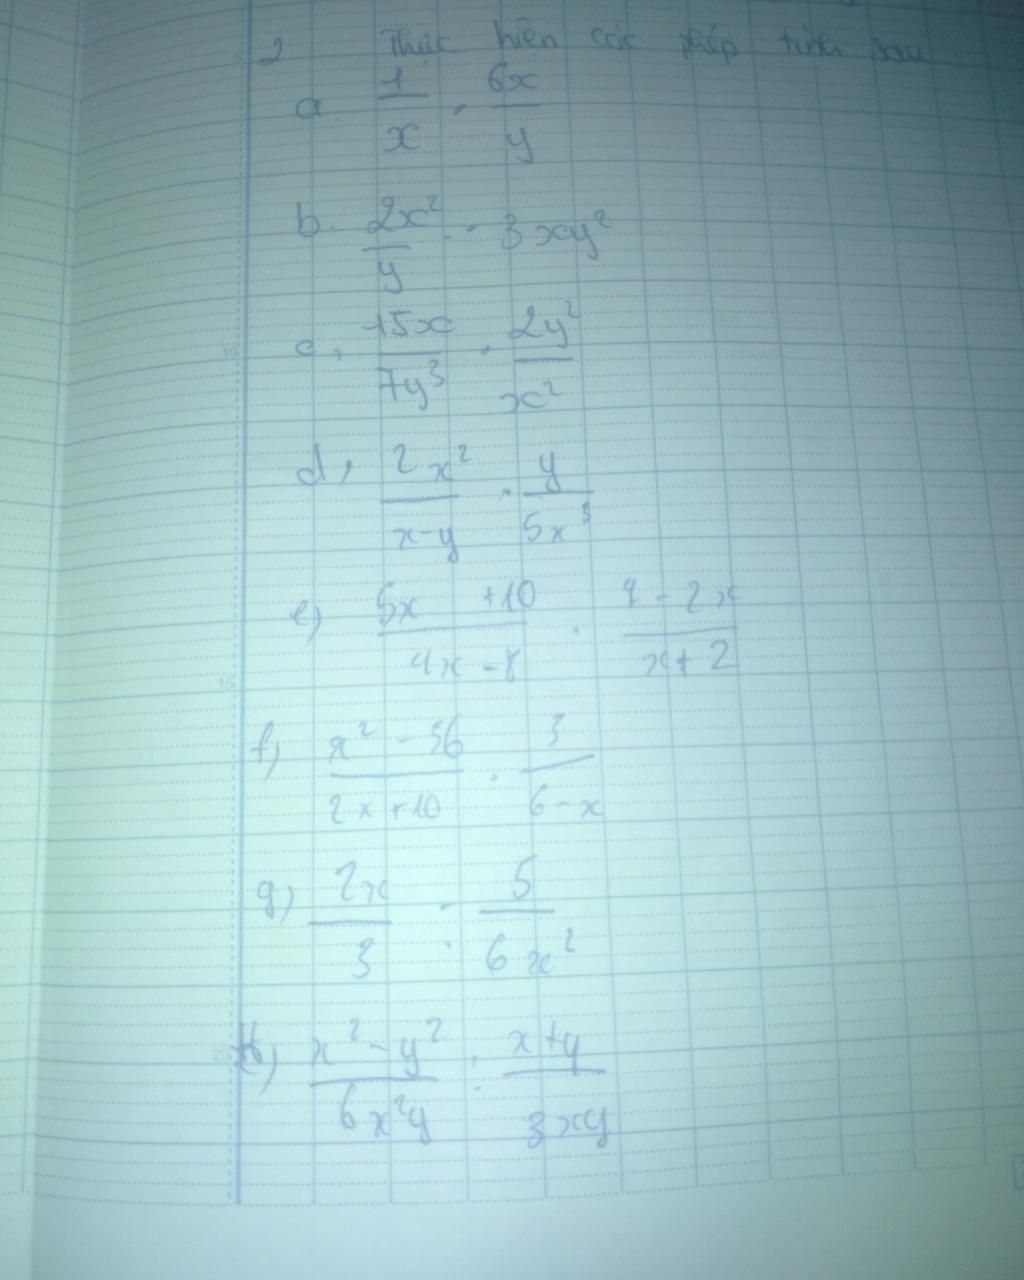 2 Thực hiện các phép tính sau
a 1/x . 6x/y
b. 2x²/y . 3xy²
c, 15x/7y³ . 2y²/x²
d, 2x²/x-y . y/5x³
e) 5x +10/4x - 8 . 4 - 2x/x + 2
f) x² - 36/2x + 10 . 3/6 - x
g) 2x/3 : 5/6x²
h) x² - y²/6x²y : x + y/3xy